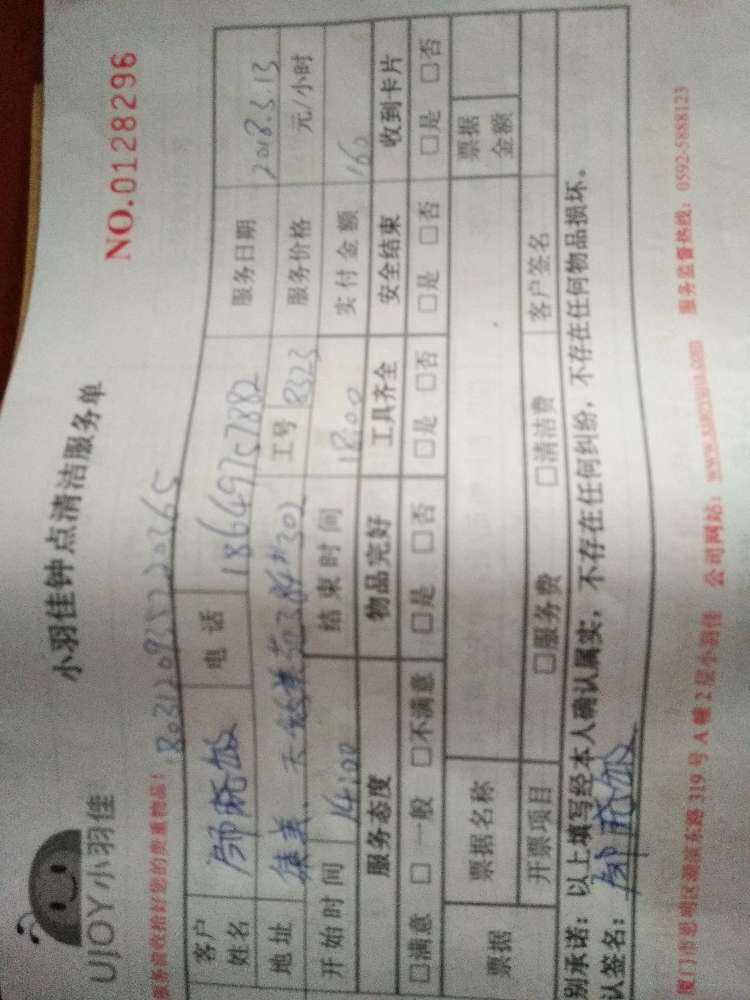 UJOY小羽佳
小羽佳钟点清洁服务单
NO.0128296
服务前收拾好您的贵重物品！
80312093522220365
客户姓名 电话 18649757882 服务日期 2018.3.13
地址 集美 302 工号 8323 服务价格 元/小时
开始时间 14:00 结束时间 18:00 实付金额 160
服务态度 物品完好 工具齐全 安全结束 收到卡片
□满意 □一般 □不满意 □是 □否 □是 □否 □是 □否 □是 □否
票据 票据名称 票据金额
开票项目 □服务费 □清洁费 客户签名
别承诺：以上填写经本人确认属实，不存在任何纠纷，不存在任何物品损坏。
认签名：
厦门市思明区湖滨东路319号A幢2层小羽佳 公司网站：www.xiaoyujia.com 服务监督热线：0592-5888123